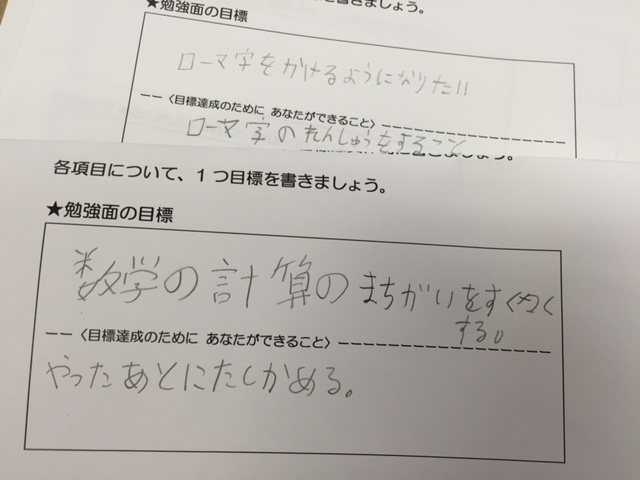 を書きましょう。
★勉強面の目標
ローマ字をかけるようになりたい
〈目標達成のために あなたができること〉
ローマ字のれんしゅうをすること
ましょう。
各項目について、1つ目標を書きましょう。
★勉強面の目標
数学の計算のまちがいをすくなく
する。
〈目標達成のために あなたができること〉
やったあとにたしかめる。